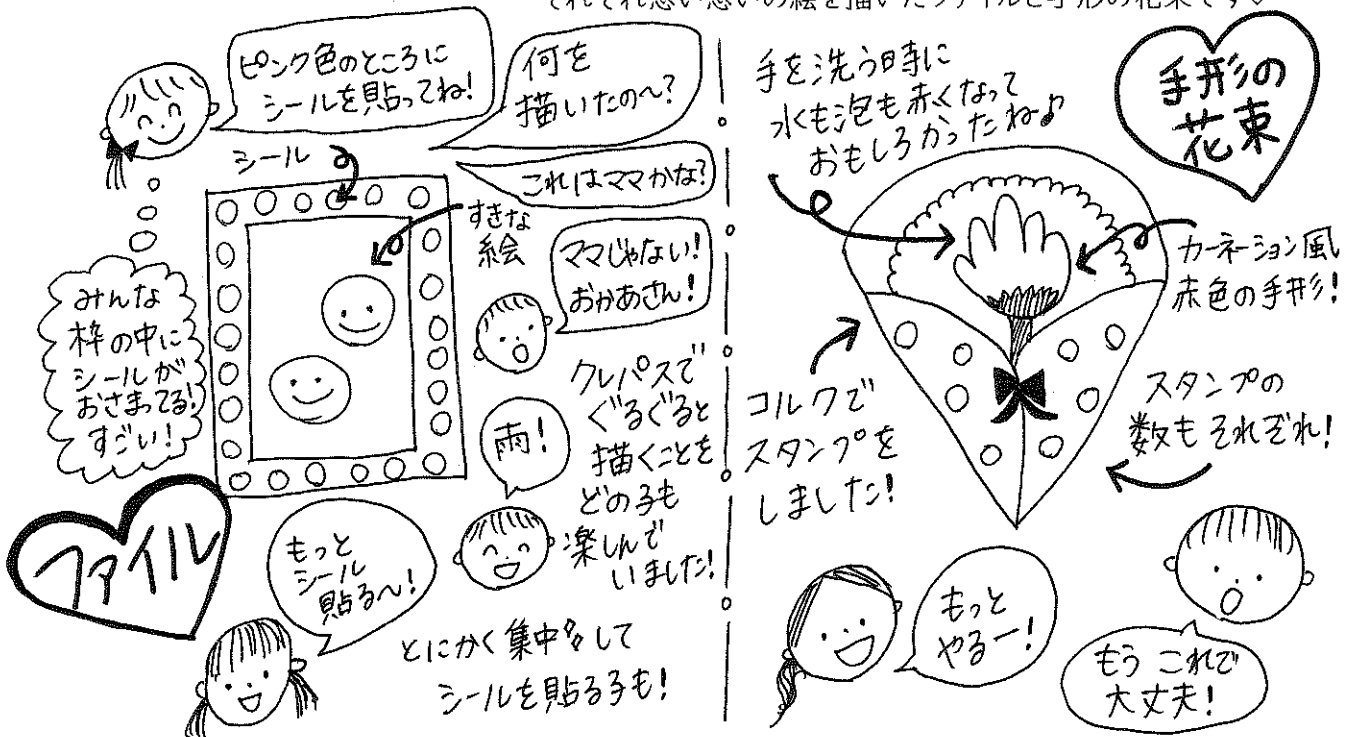 それぞれ思い思いの絵を描いたファイルと手形の花束です♡
ピンク色のところに
シールを貼ってね!
何を
描いたの〜?
これはママかな?
シール
すきな
絵
ママじゃない!
おかあさん!
みんな
枠の中に
シールが
おさまってる!
すごい!
クレパスで
ぐるぐると
描くことを
どの子も
楽しんで
いました!
雨!
ファイル
もっと
シール
貼る〜!
とにかく集中して
シールを貼る子も!
手を洗う時に
水も泡も赤くなって
おもしろかったね♪
手形の
花束
カーネーション風
赤色の手形!
コルクで
スタンプを
しました!
スタンプの
数もそれぞれ!
もっと
やるー!
もう これで
大丈夫!